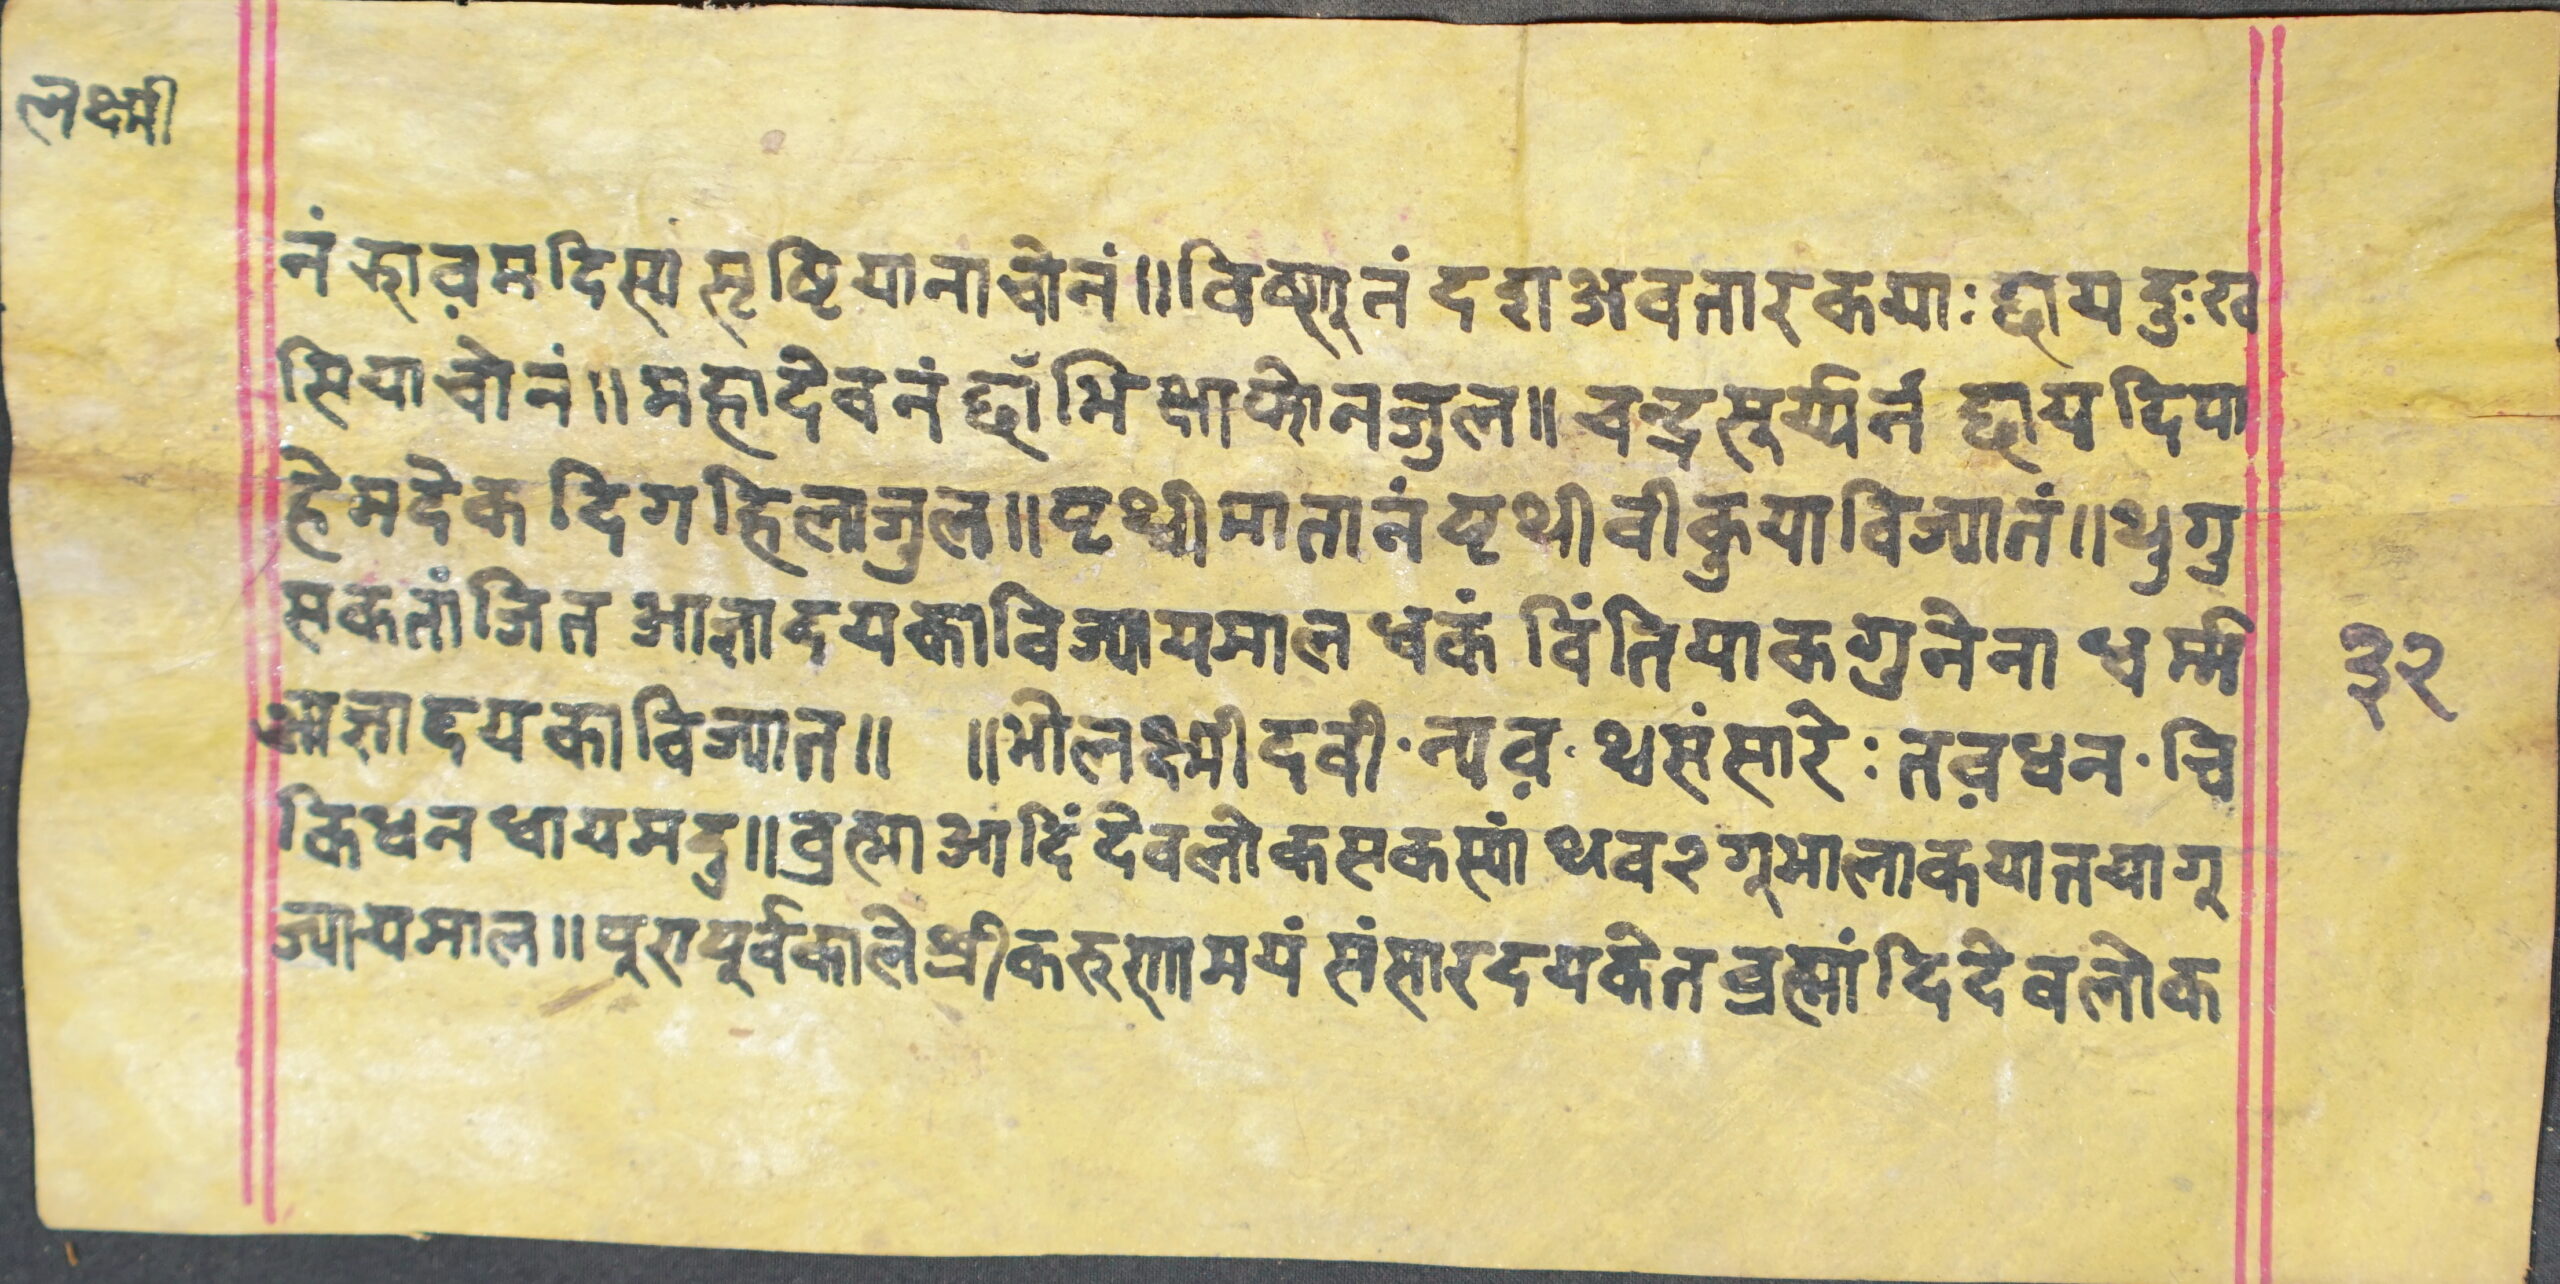 लक्ष्मी
नं फाव़मदिस्यं सृष्टियानाचोनं॥विष्णूनं दशअवतारकयाः द्वाय दुःख
सियाचोनं॥महादेवनं द्वाँ भिक्षाफोनजुल॥ चन्द्रसूर्य्यनं द्वाय दिपा
हेमदेक दिगहिलाजुल॥पृथ्वीमातानं पृथीवीकुयाविज्यातं॥थुगु
सकतां जित आज्ञादयकाविज्यायमाल धकं विंतियाकगुनेना धर्म्म
आज्ञादयकाविज्यात॥ ॥भोलक्ष्मीदवी·न्यव़·थ्वसंसारे : तव़धन·चि
किधन धायमदु॥ब्रह्मा आदिं देवलोकसकस्यां थव२गूभालाकयातयागू
ज्यायमाल॥पुरापूर्वकाले श्रीकरुणामयं संसारदयकेत ब्रह्मांदिदेवलोक
३२